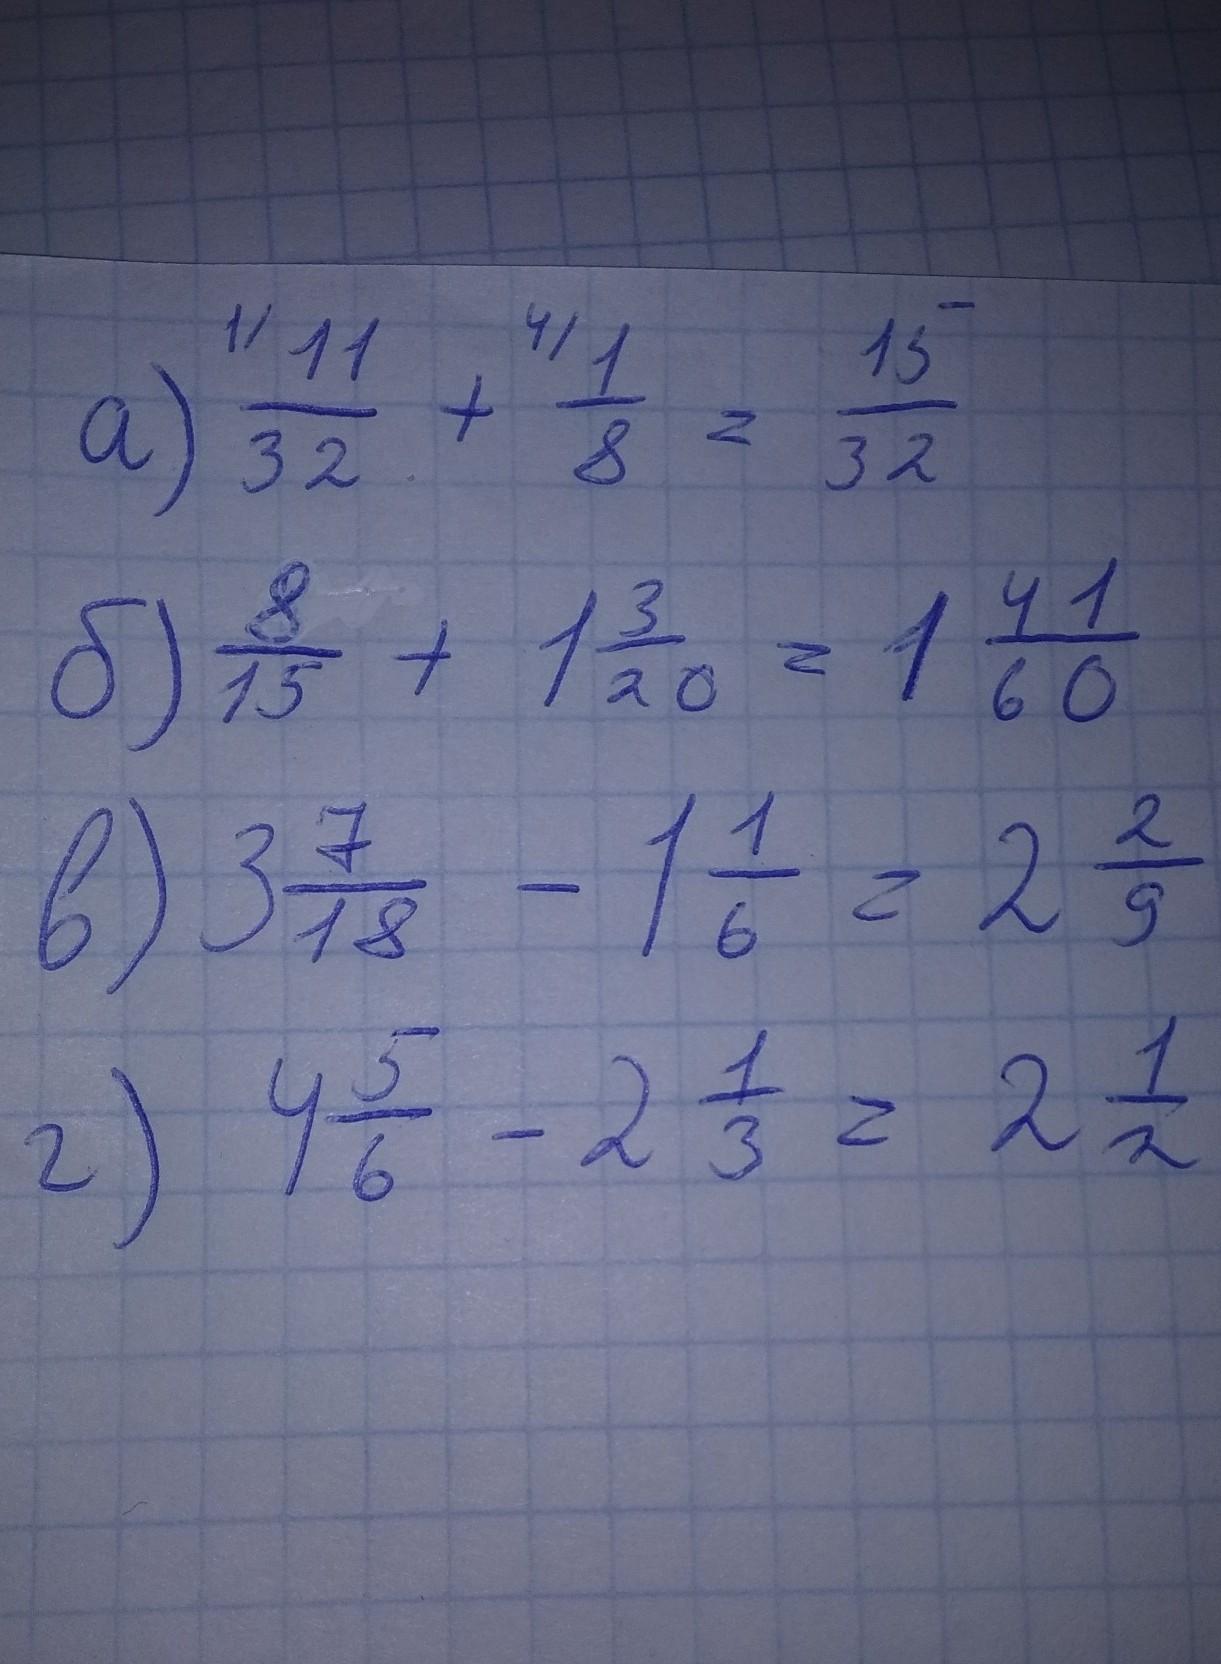 а) 1/ 11/32 + 4/ 1/8 = 15/32
б) 8/15 + 1 3/20 = 1 41/60
в) 3 7/18 - 1 1/6 = 2 2/9
г) 4 5/6 - 2 1/3 = 2 1/2